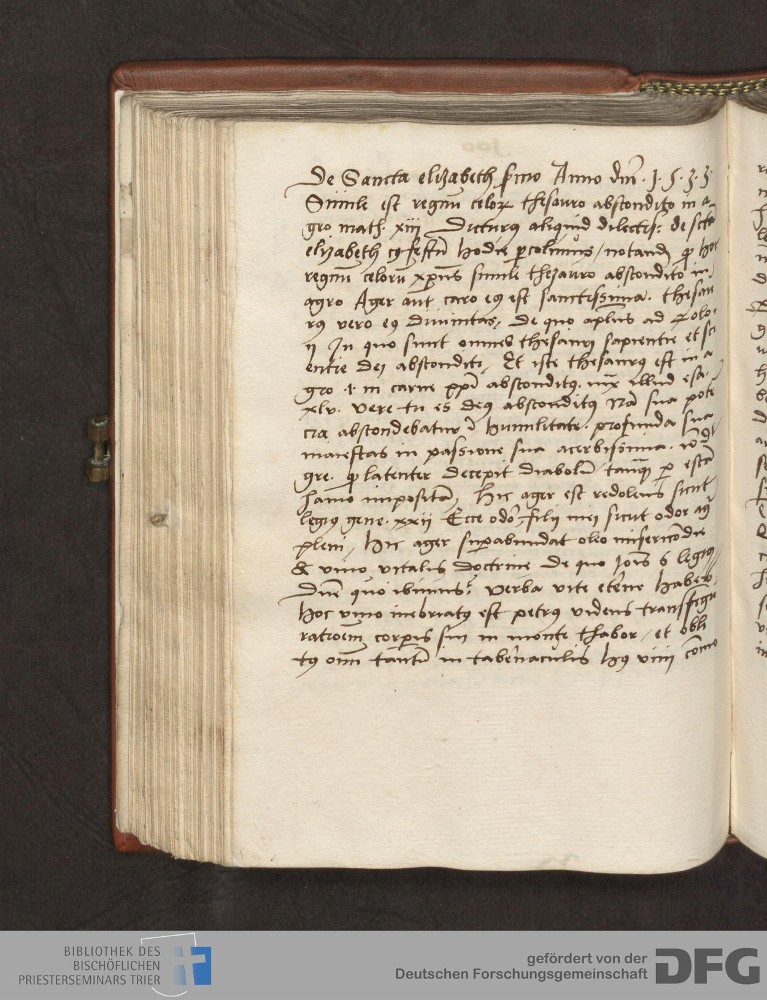 De Sancta elizabeth sermo Anno dni . 1 . 5 . 3 . 3 .
Simile est regnu celor thesauro abscondito in a
gro math. xiii Dicturq aliquid dilectis: de scta
elizabeth cq festu hodie pcolimus / notand q hoc
regnu celoru xpus simili thezauro abscondito in
agro Ager aut caro eq est sanctissima . thesau
rq vero eq divinitas, De quo aplus ad Colo.
ij In quo sunt omnes thesauri sapientie et sci
entie dei absconditi, Et iste thesaurq est in a
gro .i. in carne xpi absconditq. illud esa.
xlv. vere tu es deq absconditq Na sua pote
cia abscondebatur i humilitate . profunda sua
maiestas in passione sua acerbissima.
gre. q latenter decepit diabolu tanq p esca
hamo imposita, Hic ager est redolens sicut
legiq gene. xxvij Ecce odor filij mei sicut odor agri
pleni, Hic ager supabundat oleo misericordie
& vino vitalis doctrine De quo Jois 6 legiq
Dne quo ibimus? verba vite eterne habes.
hoc vino inebriatq est petrus videns transfigu
ratioem corpis sui in monte thabor, et obli
tq oim tantu in tabernaculis hq
BIBLIOTHEK DES
BISCHÖFLICHEN
PRIESTERSEMINARS TRIER
gefördert von der
Deutschen Forschungsgemeinschaft
DFG